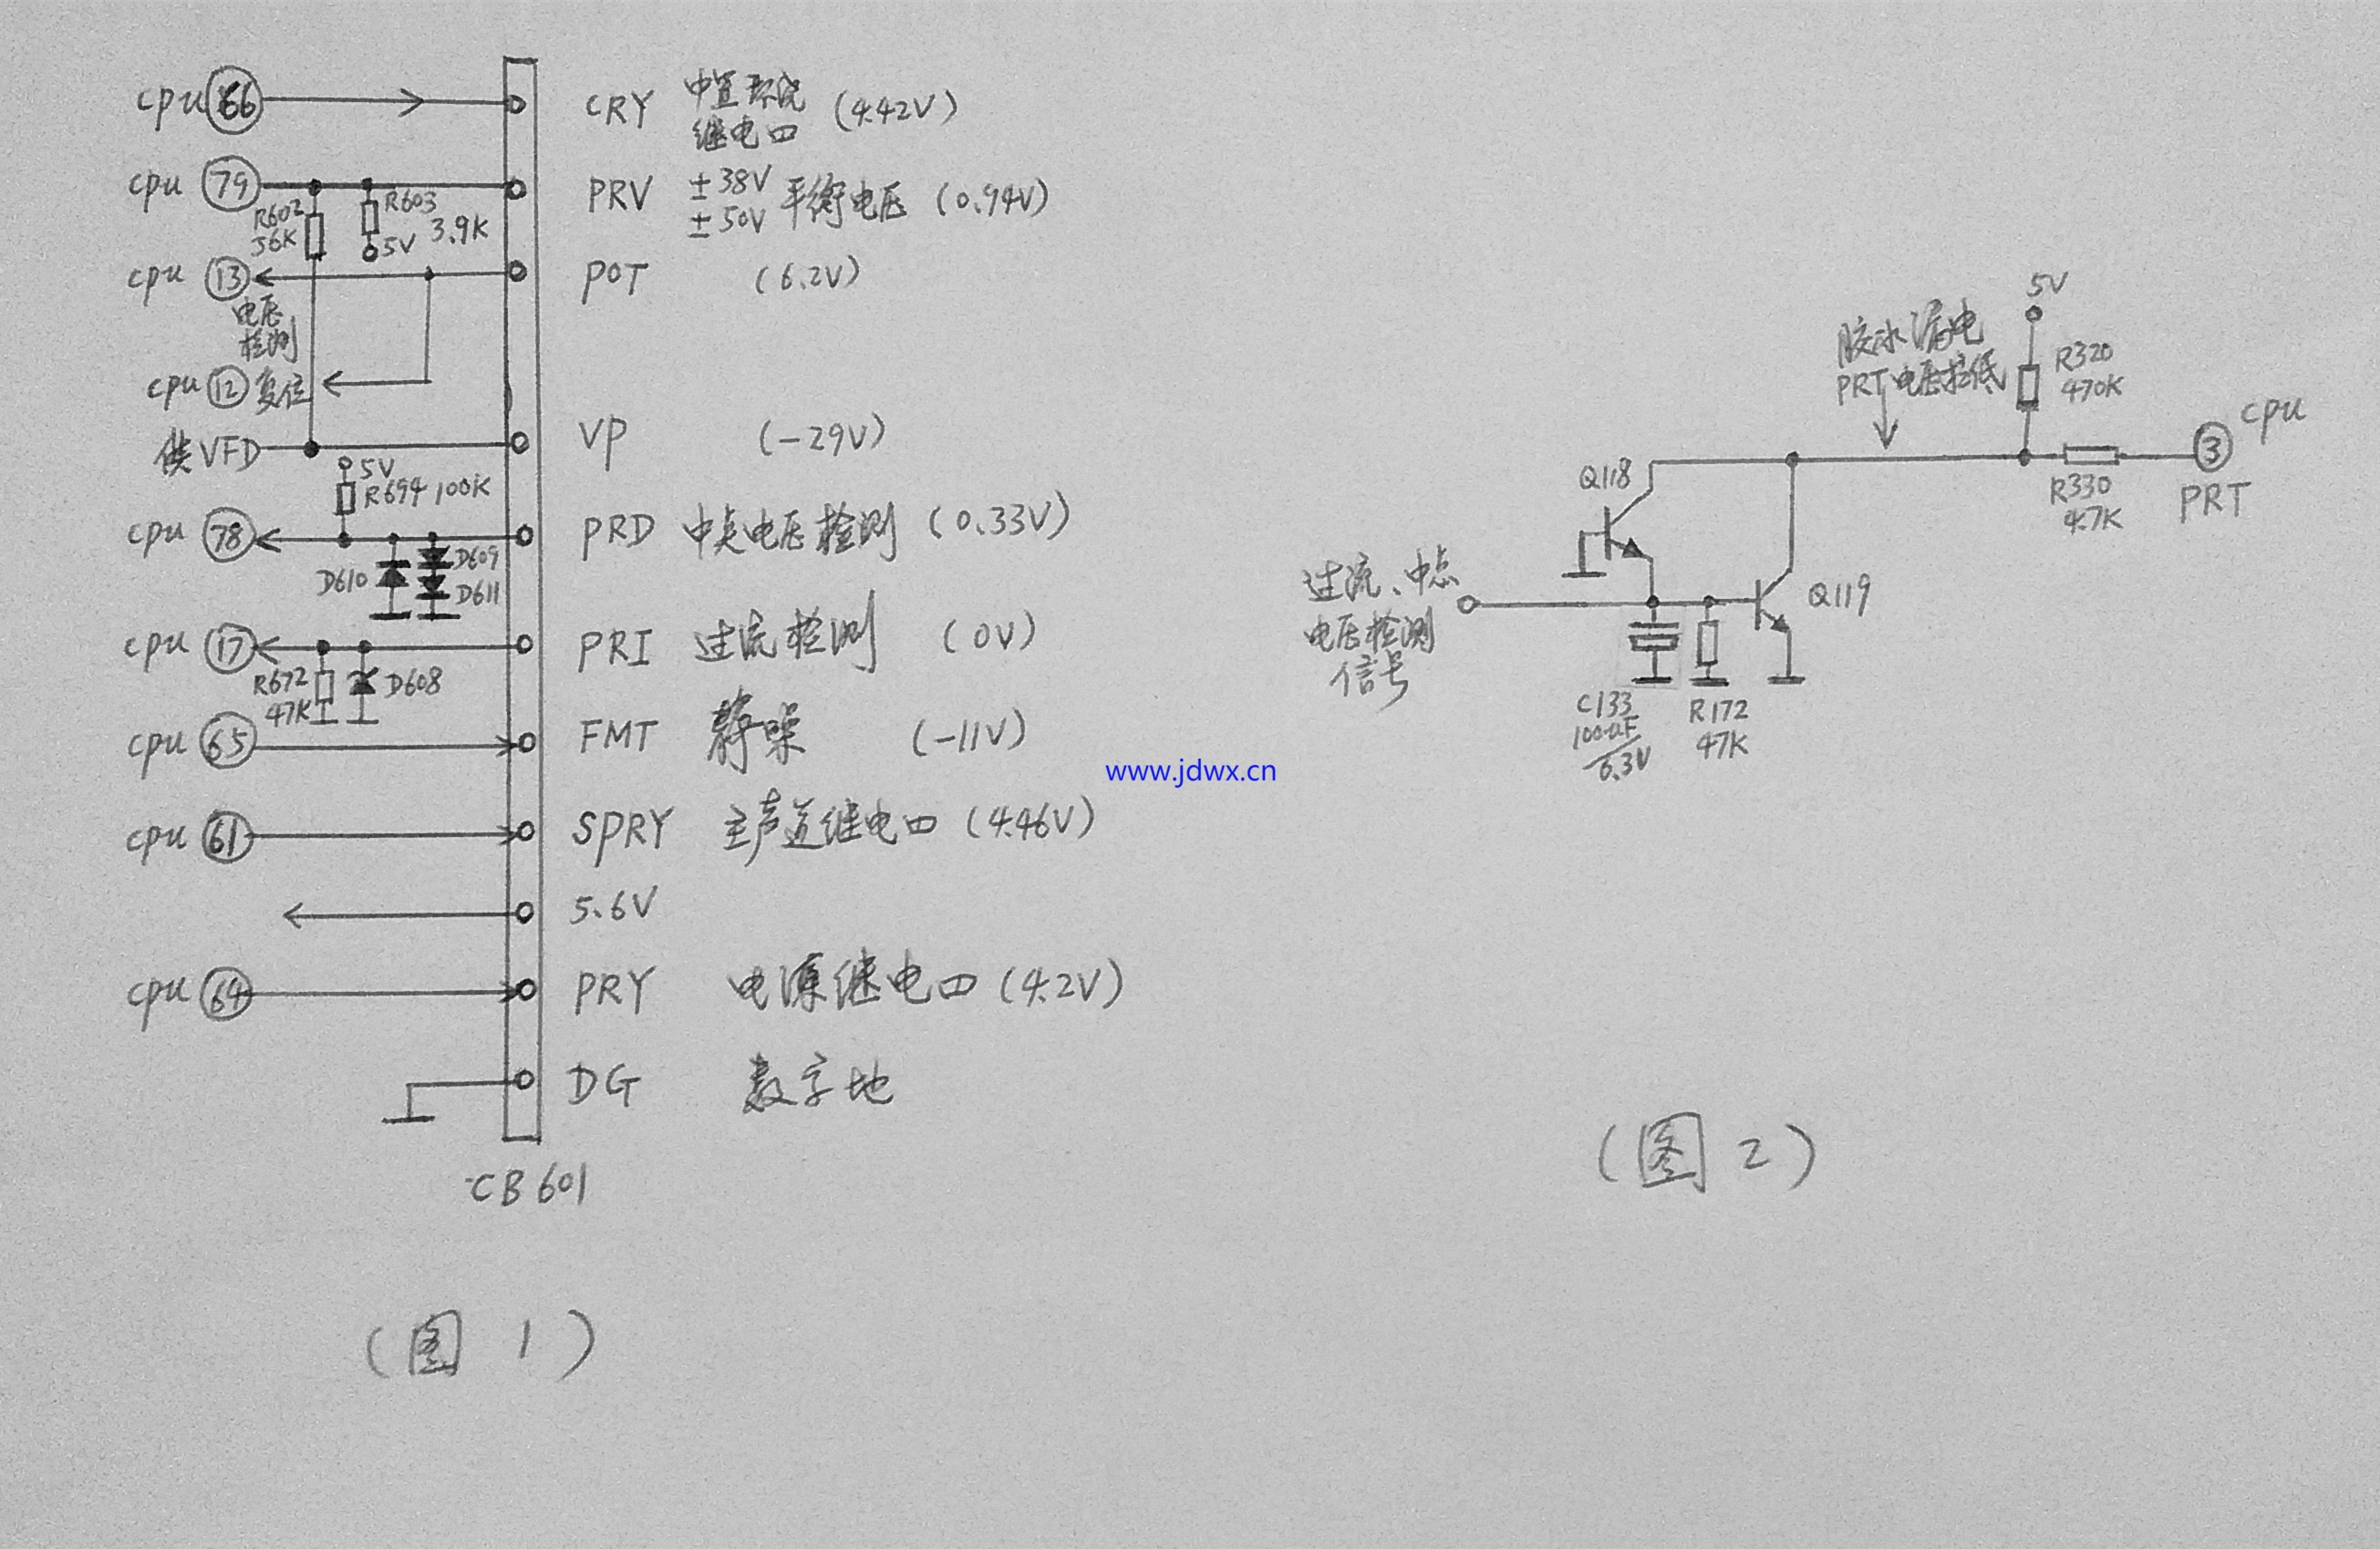 cpu 66 CRY 中置环绕 (4.42V)
继电口
cpu 79 PRV ±38V 平衡电压 (0.94V)
±50V
R602
56K
R603
3.9K
5V
cpu 13 POT (6.2V)
电压
检测
cpu 12 复位
供VFD VP (-29V)
5V
R694 100K
cpu 78 PRD 中点电压检测 (0.33V)
D610
D609
D611
cpu 17 PRI 过流检测 (0V)
R672
47K
D608
cpu 65 FMT 静噪 (-11V)
cpu 61 SPRY 主声道继电口 (4.46V)
5.6V
cpu 64 PRY 电源继电口 (4.2V)
DG 数字地
CB601
(图 1)
www.jdwx.cn
5V
胶水漏电
PRT电压拉低
R320
470K
cpu
3
PRT
R330
4.7K
Q118
过流、中点
电压检测
信号
Q119
C133
100uF
6.3V
R172
47K
(图 2)